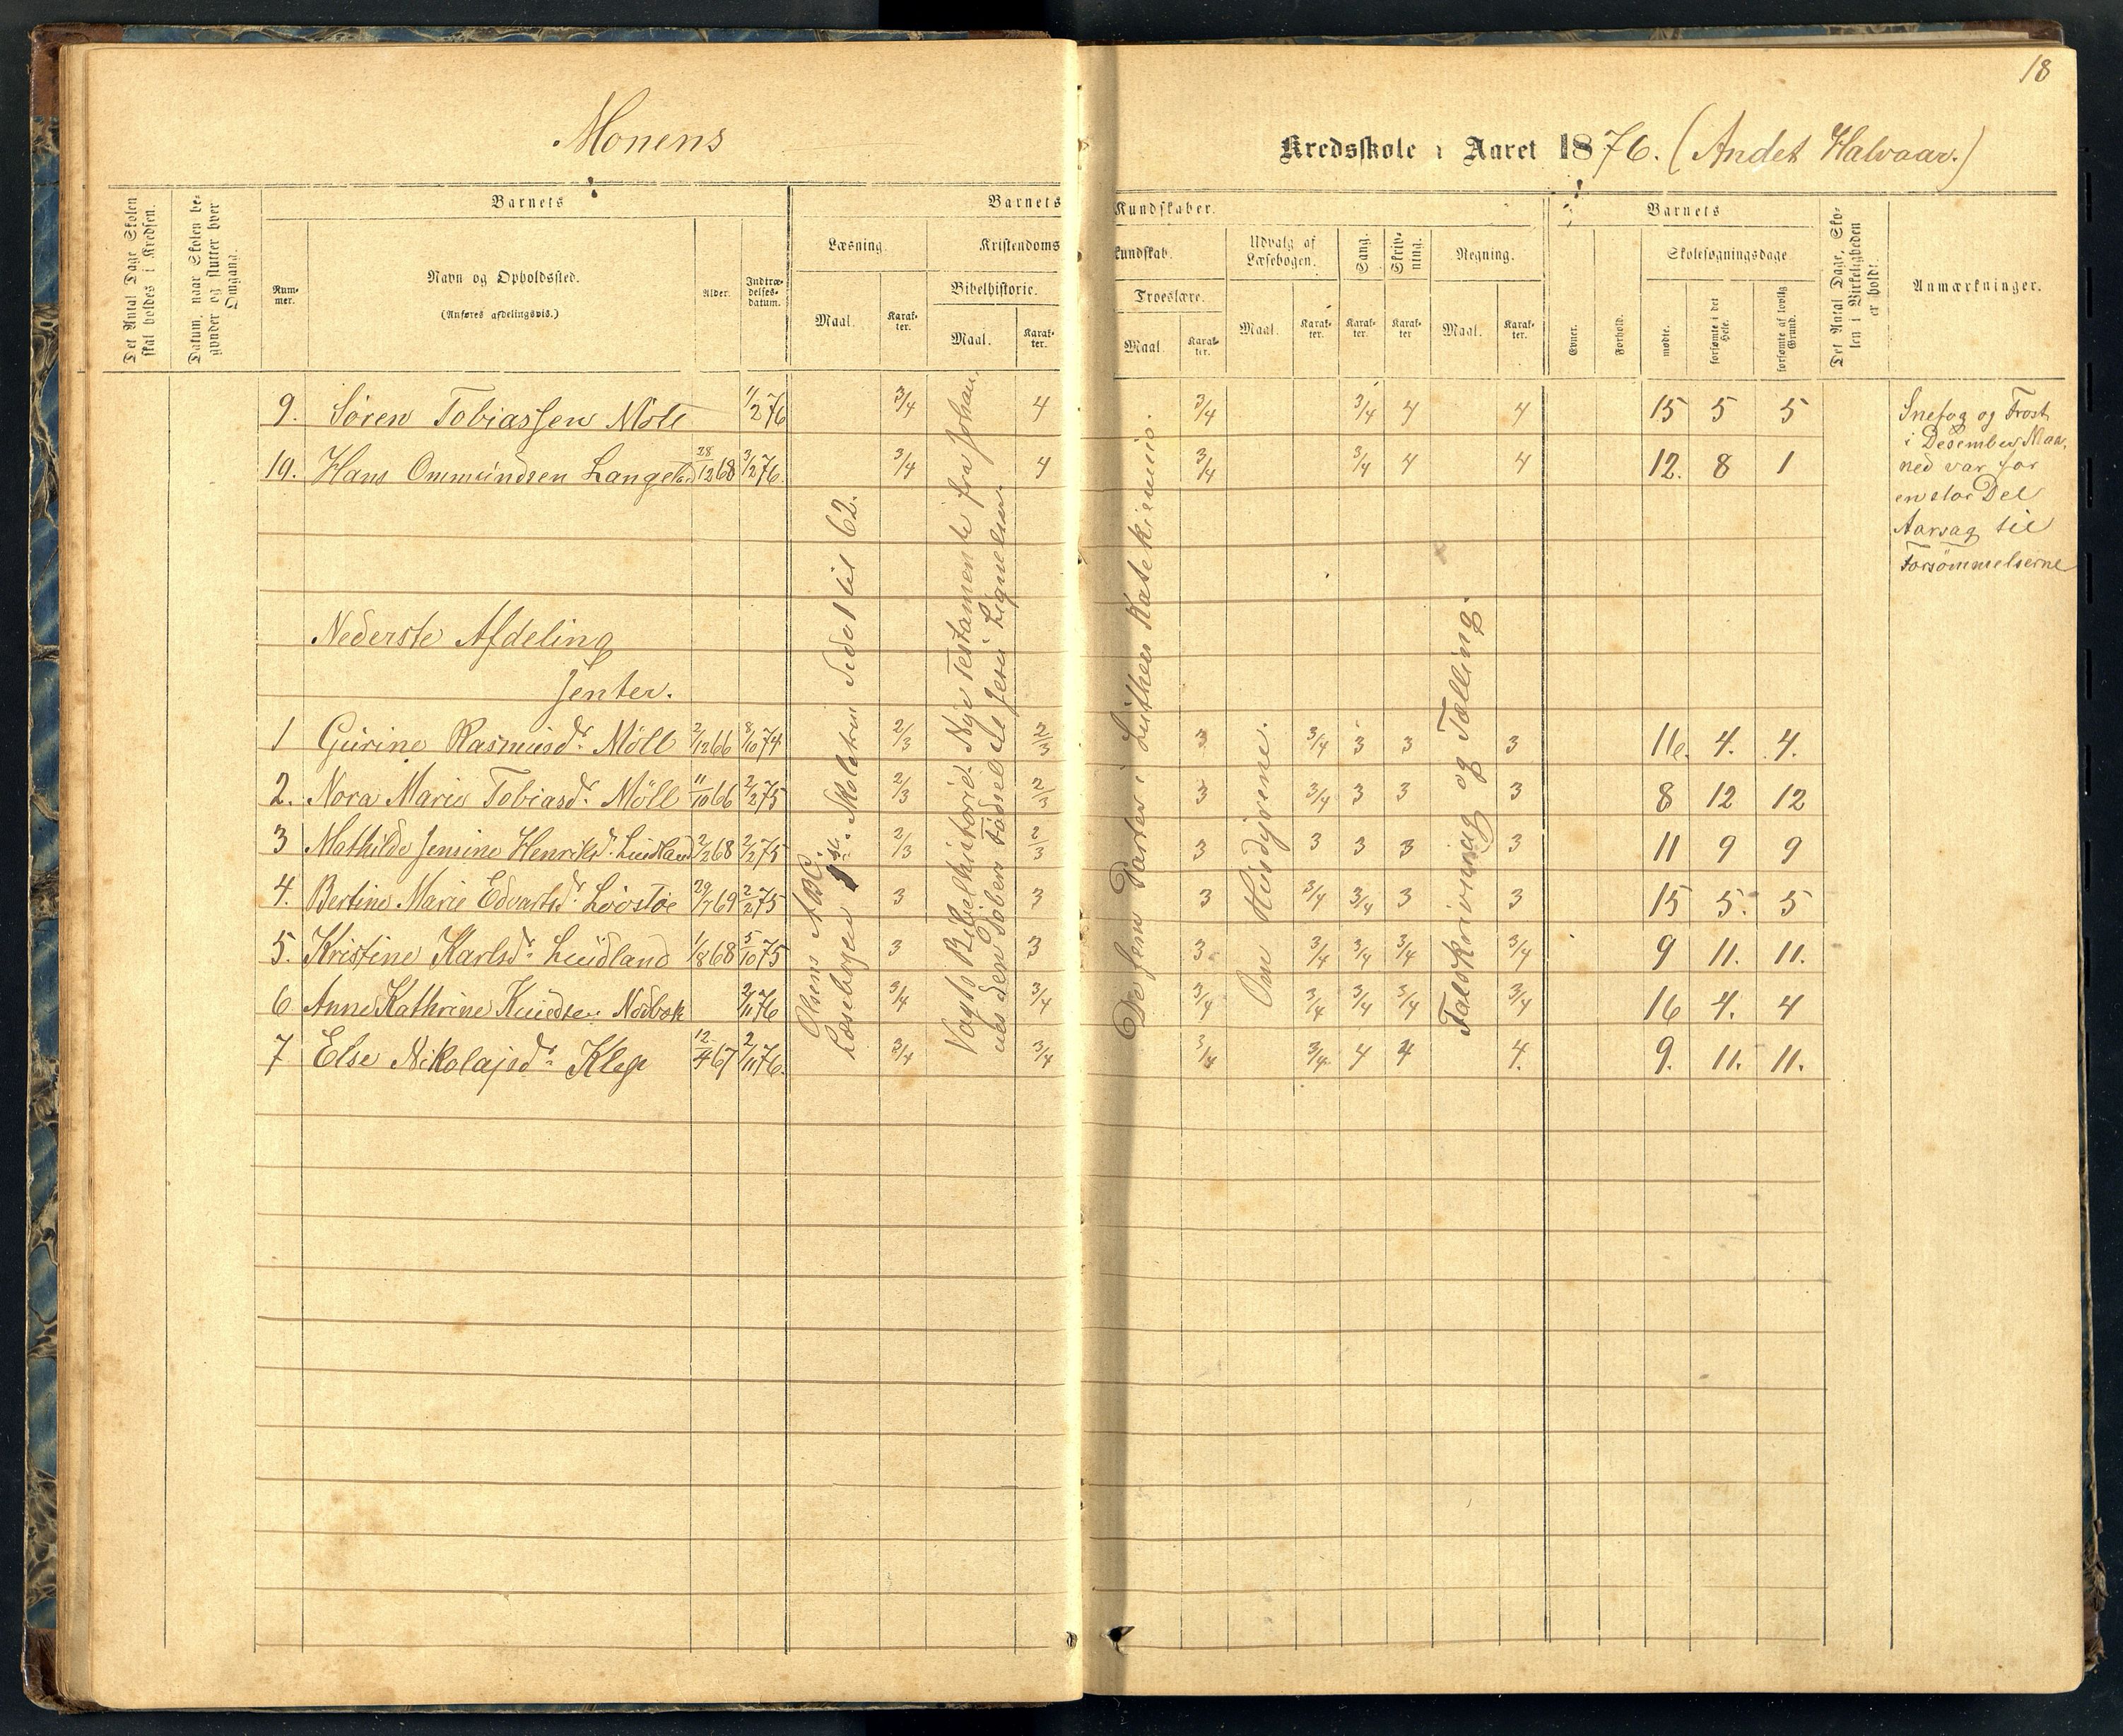 18
Monens
Kredsskole i Aaret 1876. (Andet Halvaar.)
Det Antal Dage Skolen skal holdes i Kredsen.
Datum, naar Skolen begynder og slutter hver Omgang.
Barnets
Nummer.
Navn og Opholdssted.
(Anføres afdelingsvis.)
Alder.
Indtrædelsesdatum.
Barnets Kundskaber.
Læsning.
Maal.
Karakter.
Kristendomskundskab.
Bibelhistorie.
Maal.
Karakter.
Troeslære.
Maal.
Karakter.
Udvalg af Læsebogen.
Maal.
Karakter.
Sang.
Karakter.
Skrivning.
Karakter
Regning.
Maal.
Karakter.
Barnets
Evner.
Forhold.
Skolesøgningsdage.
mødte.
forsømte i det Hele.
forsømte af lovlig Grund.
Det Antal Dage, Skolen i Virkeligheden er holdt.
Anmærkninger.
9. Sören Tobiassen Möll 11/2 76 3/4 4 3/4 3/4 4 4 15 5 5
10. Hans Ommundsen Langeland 28/12 68 3/2 76. 3/4 4 3/4 3/4 4 4 12. 8 1
Nederste Afdeling
Jenter.
1 Gurine Rasmusdr. Möll 2/12 66 8/10 74 2/3 2/3 3 3/4 3 3 3 16. 4. 4.
2. Nora Marie Tobiasdr. Möll 11/10 66 2/2 75 2/3 2/3 3 3/4 3 3 3 8 12 12
3 Mathilde Jensine Henriksd. Lundland 2/2 68 2/2 75 2/3 2/3 3 3 3 3 3 11 9 9
4. Bertine Marie Edvartsdr. Lövstöe 29/7 69 2/2 75 3 3 3 3/4 3/4 3 3 15 5. 5
5. Kristine Karlsdr. Lundland 1/8 68 5/10 75 3 3 3 3/4 3/4 3/4 3/4 9 11. 11.
6 Anne Kathrine Knudsen Nodbok 2/11 76 3/4 3/4 3/4 3/4 3/4 3/4 3/4 16 4. 4
7 Else Nikolajsdr. Klep 12/4 67 2/11 76. 3/4 3/4 3/4 3/4 4 4 4. 9. 11. 11.
Olsens ABC.
Læsebogen 1ste Skoletrin Side 1 til 62.
Vogts Bibelhistorie. Nye Testamente fra Johannes den Döbers Födsel til Jesu Lignelser.
De fem Parter i Luthers Katekismus.
Om Husdyrene.
Talskrivning og Tælling.
Snefog og Frost
i Desember Maa-
ned var for
en stor Del
Aarsag til
Forsömmelserne